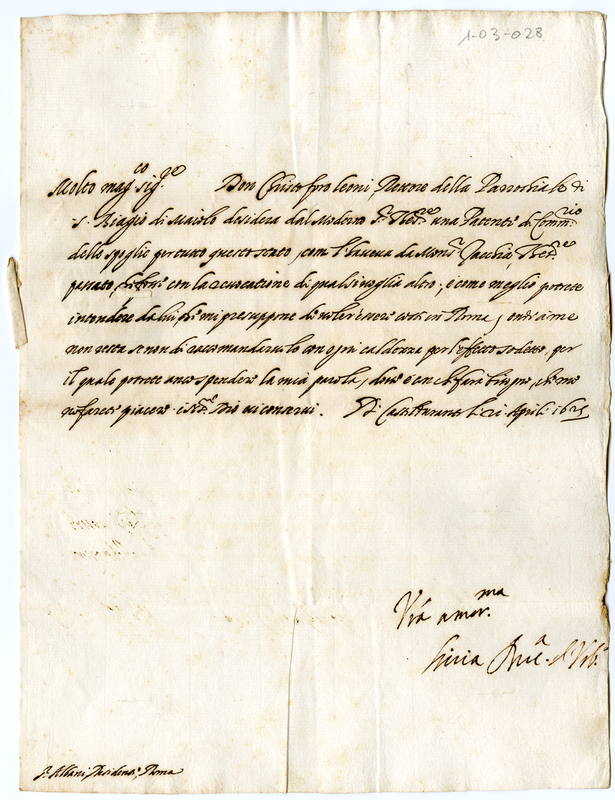 1-03-028
Molto mag.co sig.re Don Christofaro leoni, Rettore della Parrochiale di
S. Biagio di Maiolo desidera dal Moderno S.r Thes.re una Patente di Comm.rio
dello spoglio per tutto questo stato, com l'haueua da Mons.r Thes.re
passato, con la reuocatione di qualsiuoglia altro; e come meglio potrete
intendere da lui, che mi presuppone di uoler essere costì in Roma, onde à me
non resta se non di raccomandaruelo con ogni caldezza per l'effetto sodetto, per
il quale potrete anco spendere la mia parola, doue e con chi farà bisogno, che me
ne farete piacere. e N.ro S.re Dio ui conserui. Di Casteldurante li 21 Aprile 1625
V.ra amor.ma
Liuia Duc.a d'Urb.o
S.r Albani, Residente, Roma